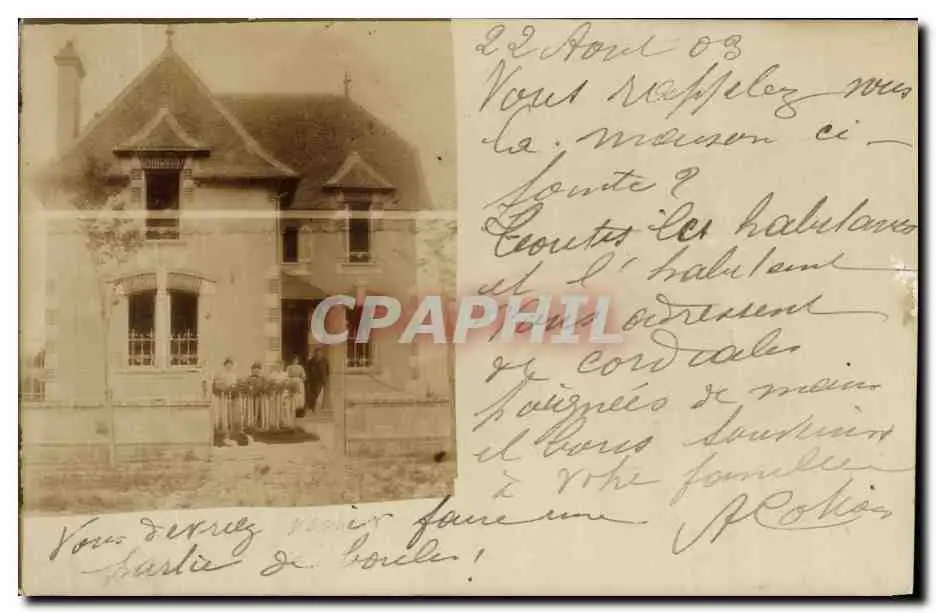 22 Aout 03
Vous rappelez vous
la maison ci-
jointe ?
Toutes les habitantes
et l'habitant
vous adressent
de cordiales
poignées de main
et bons souvenirs
à votre famille
Vous devriez venir faire une
partie de boules !
CPAPHIL